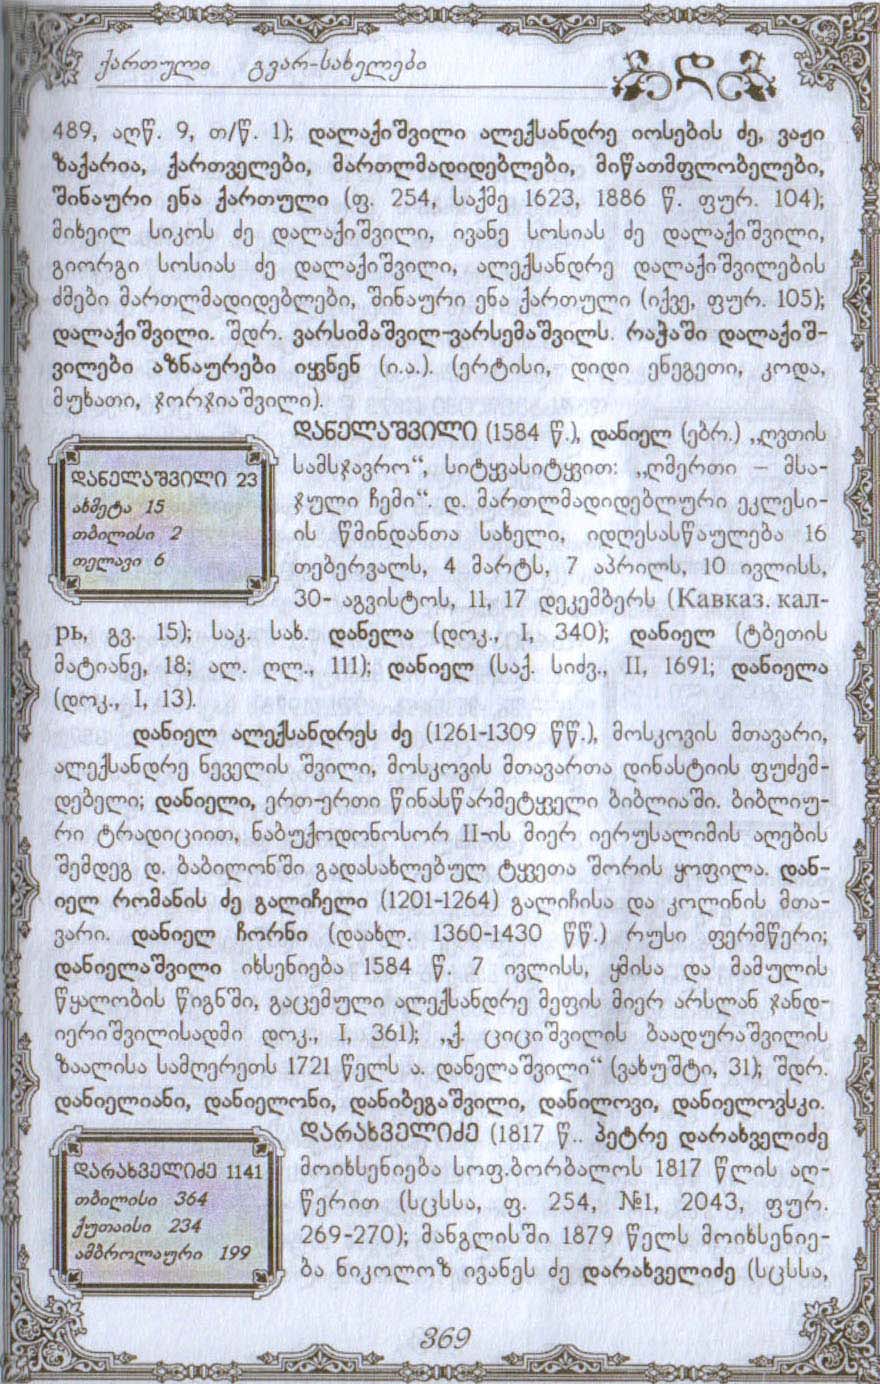 ქართული გვარ-სახელები
დ
489, აღწ. 9, თ/წ. 1); დალაქიშვილი ალექსანდრე იოსების ძე, ვაჟი
ზაქარია, ქართველები, მართლმადიდებლები, მიწათმფლობელები,
შინაური ენა ქართული (ფ. 254, საქმე 1623, 1886 წ. ფურ. 104);
მიხეილ სიკოს ძე დალაქიშვილი, ივანე სოსიას ძე დალაქიშვილი,
გიორგი სოსიას ძე დალაქიშვილი, ალექსანდრე დალაქიშვილების
ძმები მართლმადიდებლები, შინაური ენა ქართული (იქვე, ფურ. 105);
დალაქიშვილი. შდრ. ვარსიმაშვილ-ვარსემაშვილს. რაჭაში დალაქიშ-
ვილები აზნაურები იყვნენ (ი.ა.). (ერტისი, დიდი ენეგეთი, კოდა,
მუხათი, ჯორჯიაშვილი).
დანელაშვილი (1584 წ.), დანიელ (ებრ.) „ღვთის
სამსჯავრო“, სიტყვასიტყვით: „ღმერთი – მსა-
ჯული ჩემი“. დ. მართლმადიდებლური ეკლესი-
ის წმინდანთა სახელი, იდღესასწაულება 16
თებერვალს, 4 მარტს, 7 აპრილს, 10 ივლისს,
30- აგვისტოს, 11, 17 დეკემბერს (Кавказ. кал-
рь, გვ. 15); საკ. სახ. დანელა (დოკ., I, 340); დანიელ (ტბეთის
მატიანე, 18; ალ. ღლ., 111); დანიელ (საქ. სიძვ., II, 1691; დანიელა
(დოკ., I, 13).
დანელაშვილი 23
ახმეტა 15
თბილისი 2
თელავი 6
დანიელ ალექსანდრეს ძე (1261-1309 წწ.), მოსკოვის მთავარი,
ალექსანდრე ნეველის შვილი, მოსკოვის მთავართა დინასტიის ფუძემ-
დებელი; დანიელი, ერთ-ერთი წინასწარმეტყველი ბიბლიაში. ბიბლიუ-
რი ტრადიციით, ნაბუქოდონოსორ II-ის მიერ იერუსალიმის აღების
შემდეგ დ. ბაბილონში გადასახლებულ ტყვეთა შორის ყოფილა. დან-
იელ რომანის ძე გალიჩელი (1201-1264) გალიჩისა და კოლინის მთა-
ვარი. დანიელ ჩორნი (დაახლ. 1360-1430 წწ.) რუსი ფერმწერი;
დანიელაშვილი იხსენიება 1584 წ. 7 ივლისს, ყმისა და მამულის
წყალობის წიგნში, გაცემული ალექსანდრე მეფის მიერ არსლან ჯანდ-
იერიშვილისადმი დოკ., I, 361); „ქ. ციციშვილის ბაადურაშვილის
ზაალისა სამღერეთს 1721 წელს ა. დანელაშვილი“ (ვახუშტი, 31); შდრ.
დანიელიანი, დანიელონი, დანიბეგაშვილი, დანილოვი, დანიელოვსკი.
დარახველიძე (1817 წ.. პეტრე დარახველიძე
მოიხსენიება სოფ.ბორბალოს 1817 წლის აღ-
წერით (სცსსა, ფ. 254, №1, 2043, ფურ.
269-270); მანგლისში 1879 წელს მოიხსენიე-
ბა ნიკოლოზ ივანეს ძე დარახველიძე (სცსსა,
დარახველიძე 1141
თბილისი 364
ქუთაისი 234
ამბროლაური 199
369